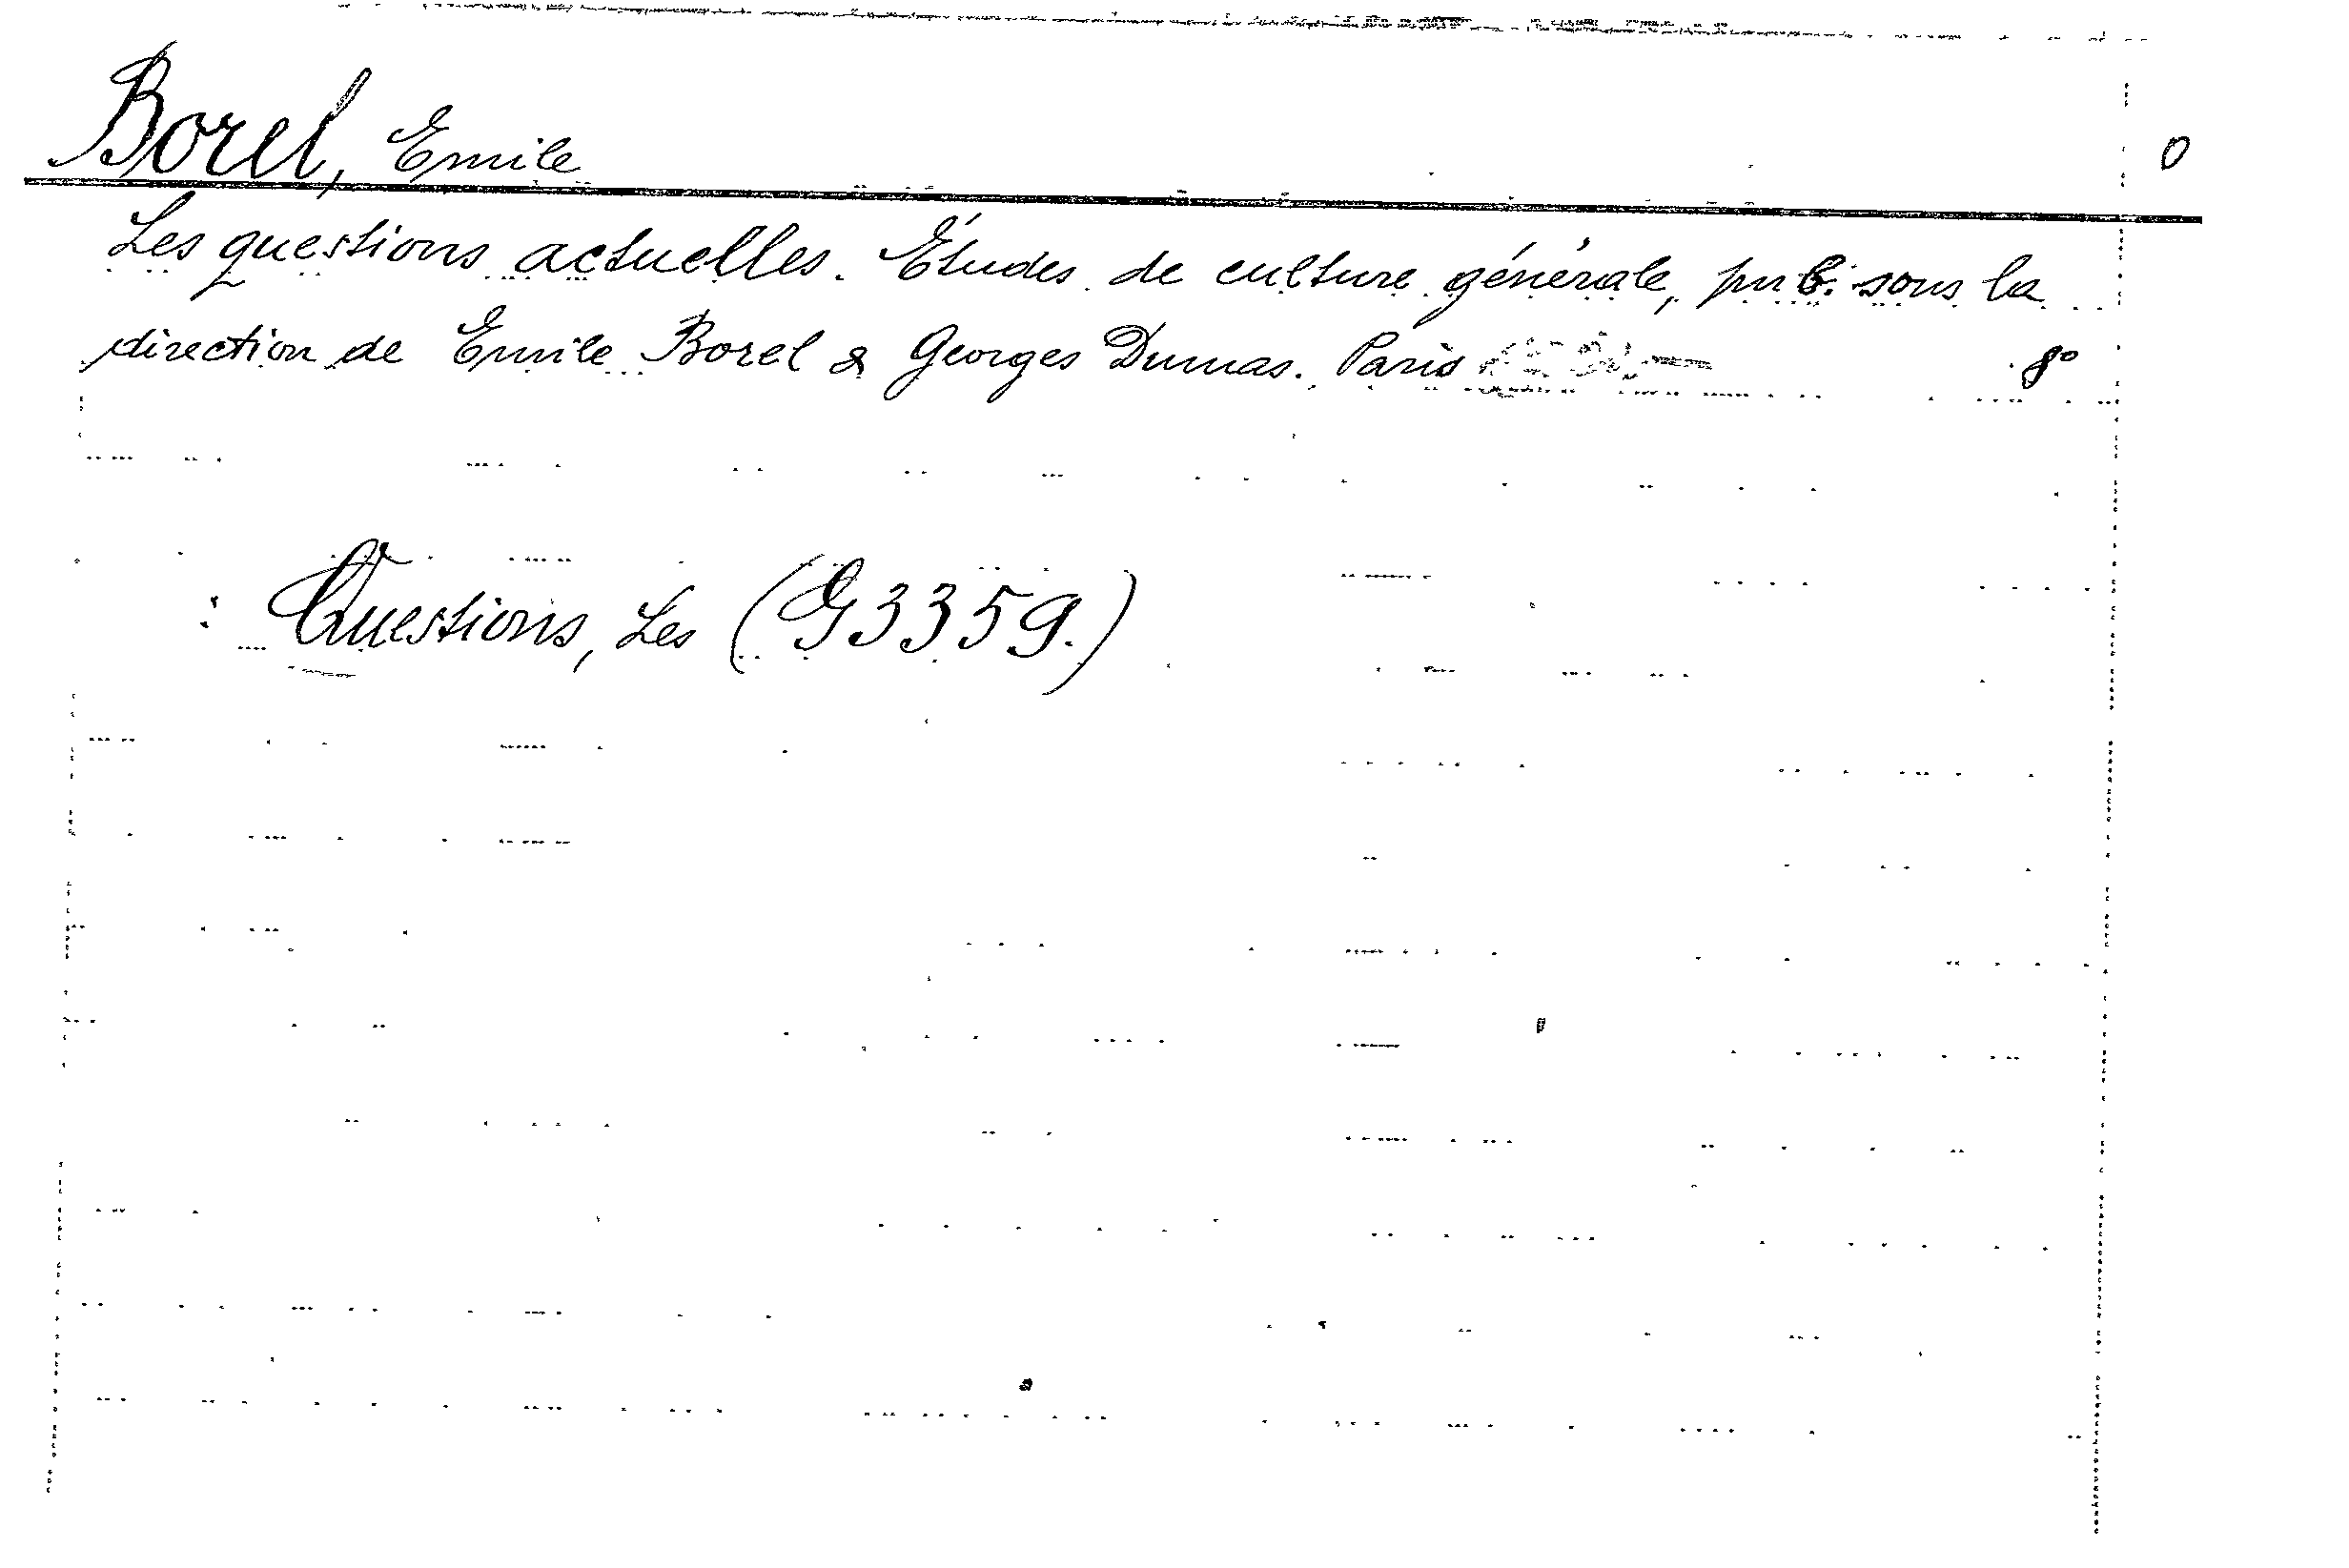 Borel, Emile 0
Les questions actuelles. Études de culture générale, pub. sous la
direction de Emile Borel & Georges Dumas. Paris 8°
: Questions, Les (G3359.)